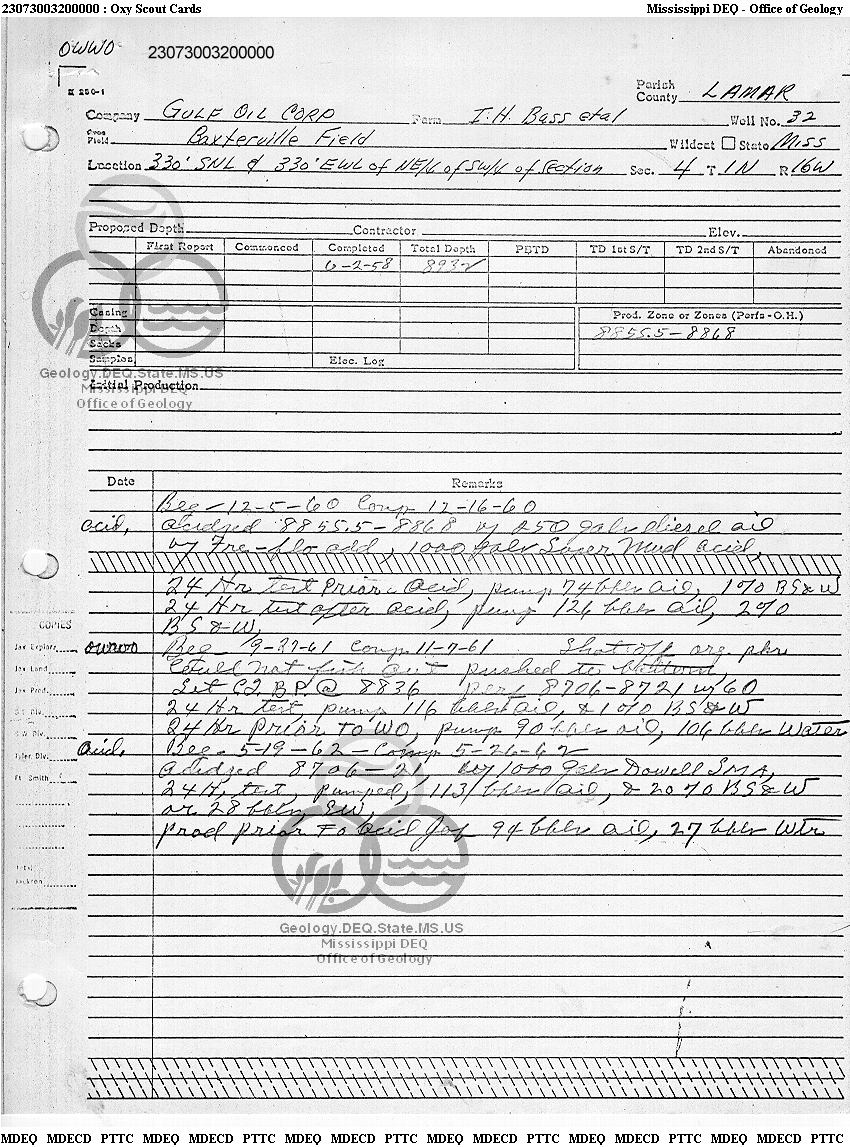 23073003200000 : Oxy Scout Cards Mississippi DEQ - Office of Geology
OWWO 23073003200000
Parish
County LAMAR
Company GULF OIL CORP Farm I.H. Bass etal Well No. 32
Field Baxterville Field Wildcat State Miss
Location 330' SNL & 330' EWL of NE/4 of SW/4 of Section Sec. 4 T 1N R 16W
Proposed Depth Contractor Elev.
First Report Commenced Completed Total Depth PBTD TD 1st S/T TD 2nd S/T Abandoned
6-2-58 8932
Casing Prod. Zone or Zones (Perfs-O.H.)
Depth 8855.5-8868
Sacks
Samples Elec. Log
Geology.DEQ.State.MS.US
Initial Production
Mississippi DEQ
Office of Geology
Date Remarks
Beg - 12-5-60 Comp 12-16-60
acid, acidized 8855.5-8868 w/ 250 gals diesel oil
w/ Fre-flo add, 1000 gals Super Mud acid,
24 Hr test Prior acid, pump 74 bbls oil, 1% BS&W
24 Hr test after acid, pump 126 bbls oil, 2%
BS&W,
COPIES
owwo Beg - 9-27-61 Comp 11-7-61 Shot off org. pkr
Jax Explore
Could not fish out pushed to bottom,
Jax Land
Jax Prod. Set CI BP @ 8836 perf 8706-8721 w/ 60
24 Hr test pump 116 bbls oil, & 1% BS&W
24 Hr Prior To WO, pump 90 bbls oil, 106 bbls Water
Tyler Div. Acid, Beg - 5-19-62 - Comp 5-26-62
Ft. Smith acidized 8706-21, w/ 1000 gals Dowell
24 Hr test, pumped, 113 bbls oil, & 20% BS&W
or 28 bbls, SW,
prod prior to acid Job 94 bbls oil, 27 bbls Wtr
Geology.DEQ.State.MS.US
Mississippi DEQ
Office of Geology
MDEQ MDECD PTTC MDEQ MDECD PTTC MDEQ MDECD PTTC MDEQ MDECD PTTC MDEQ MDECD PTTC MDEQ MDECD PTTC